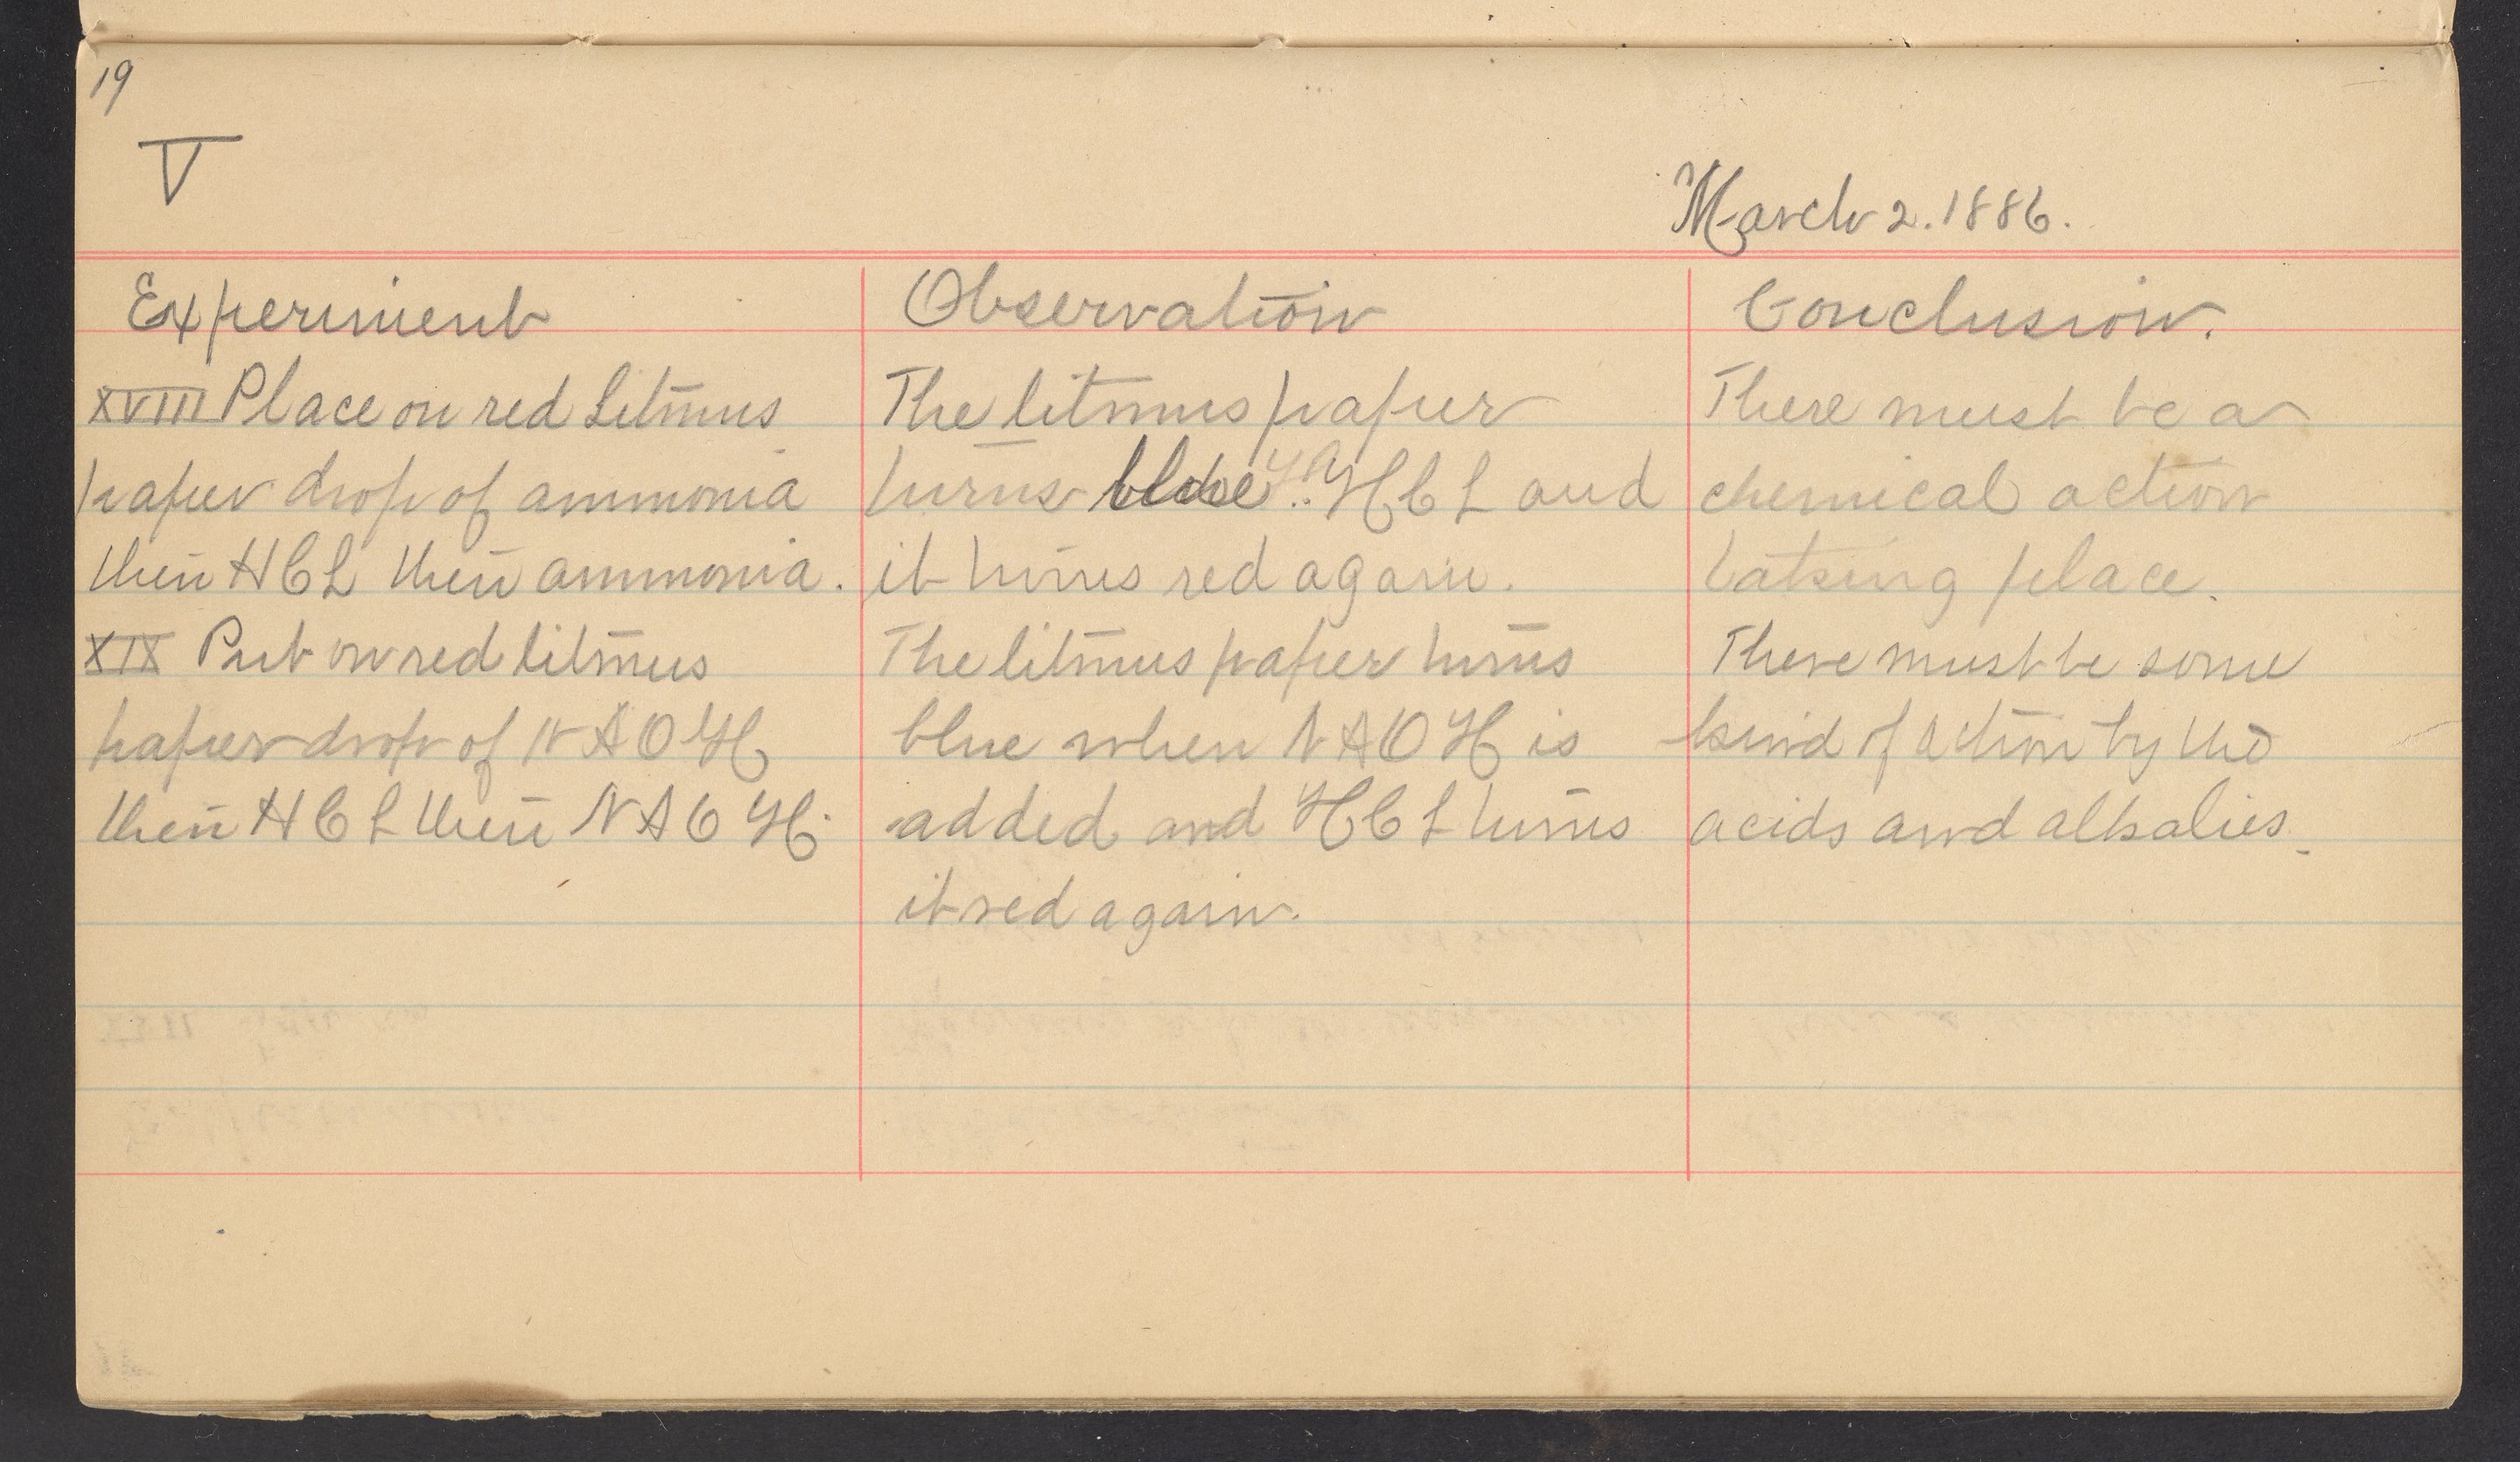 19
V
March 2. 1886.
Experiment
XVIII Place on red litmus
paper drop of ammonia
then H C L then ammonia.
XIX Put on red litmus
paper drop of N A O H
then H C L then N A O H.
Observation
The litmus paper
turns blue H C L and
it turns red again.
The litmus paper turns
blue when N A O H is
added and H C L turns
it red again.
Conclusion.
There must be a
chemical action
taking place.
There must be some
kind of action by the
acids and alkalies.